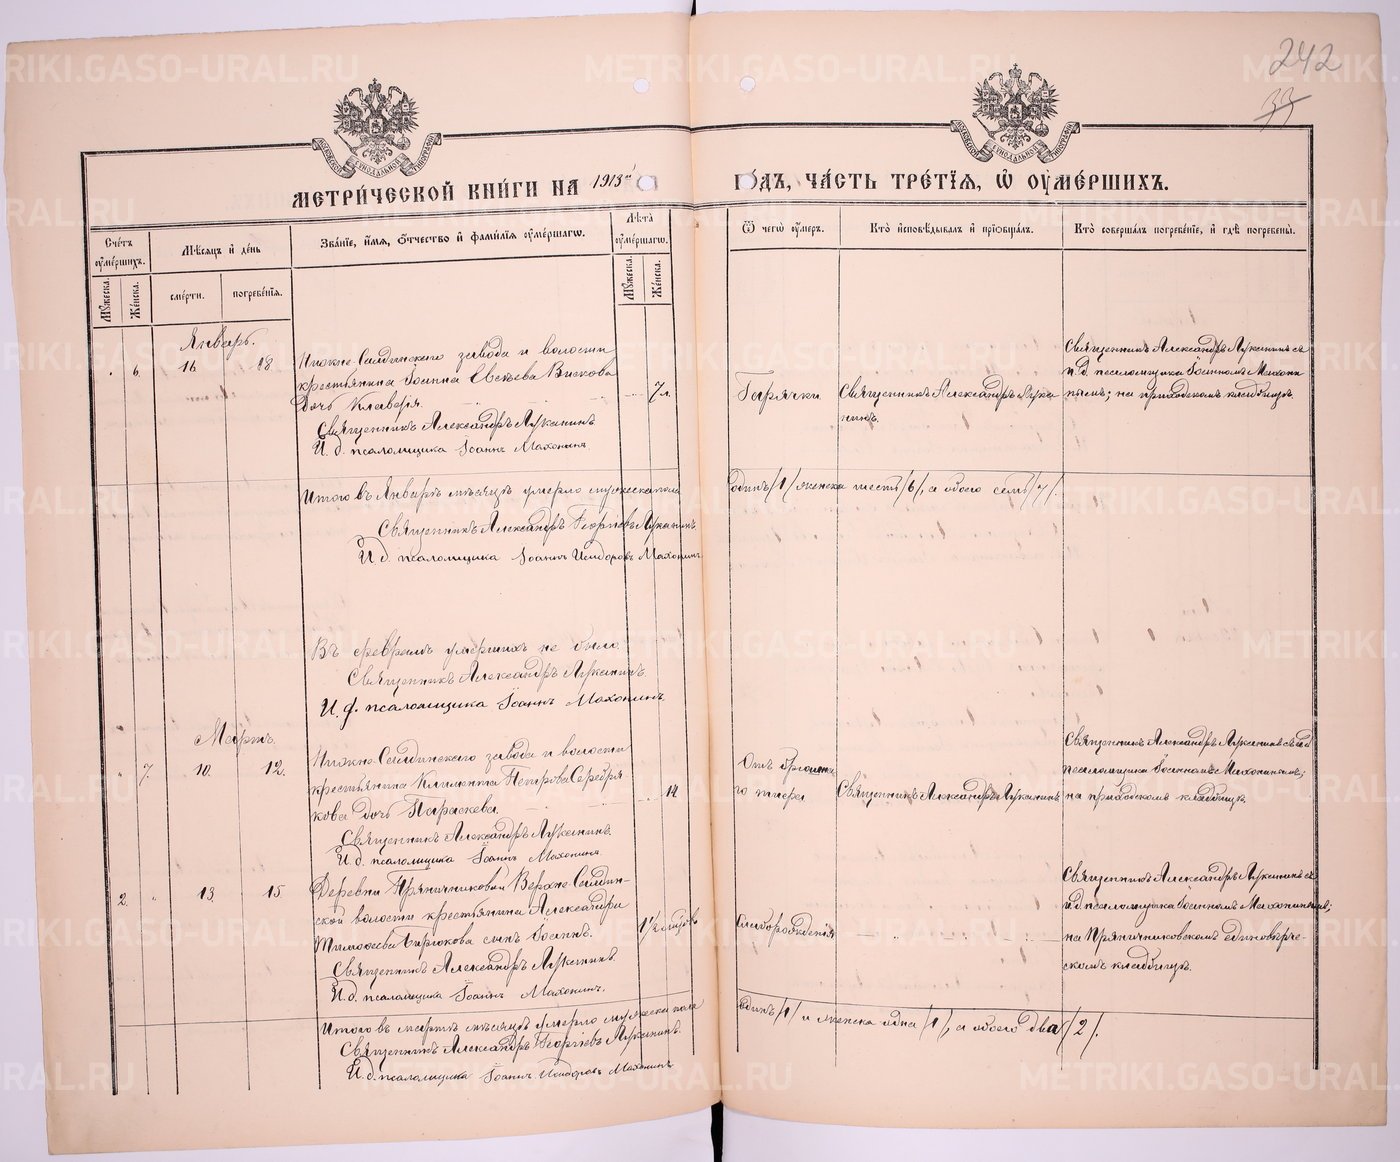 242
33
МЕТРИ́ЧЕСКОЙ КНИ́ГИ НА 1913й ГО́ДЪ, ЧА́СТЬ ТРЕ́ТІЯ, Ѡ ОУМЕ́РШИХЪ.
Сче́тъ оуме́ршихъ.
Му́жеска.
Же́нска.
Мѣ́сяцъ и де́нь
сме́рти.
погребе́нія.
Зва́ніе, и́мя, о́тчество и фами́лія оуме́ршагѡ.
Лѣ́та оуме́ршагѡ.
Му́жеска.
Же́нска.
Ѿ чегѡ̀ оу́меръ.
Кто̀ исповѣ́дывалъ и пріѡбща́лъ.
Кто̀ соверша́лъ погребе́ніе, и гдѣ̀ погребены̀.
Январь.
6. 16 18
Нижне-Салдинскаго завода и волости
крестьянина Іоанна Евсѣева Вискова
дочь Клавдія.
7 л.
Священникъ Александръ Луканинъ
И. д. псаломщика Іоаннъ Махонинъ
Горячки
Священникъ Александръ Лука
нинъ.
Священникъ Александръ Луканинъ съ
и. д. псаломщика Іоанномъ Махони
нымъ; на приходскомъ кладбищѣ.
Итого въ Январѣ мѣсяцѣ умерло мужеска пола одинъ /1/ женска шесть /6/, а обоего семь /7/.
Священникъ Александръ Георгіевъ Луканинъ
И. д. псаломщика Іоаннъ Исидоровъ Махонинъ
Въ февралѣ умершихъ не было.
Священникъ Александръ Луканинъ.
И. д. псаломщика Іоаннъ Махонинъ.
Мартъ.
7. 10. 12.
Нижне-Салдинскаго завода и волости
крестьянина Климента Петрова Серебря-
кова дочь Параскева.
14
Священникъ Александръ Луканинъ.
И. д. псаломщика Іоаннъ Махонинъ.
Отъ брюшна
го тифа
Священникъ Александръ Луканинъ
Священникъ Александръ Луканинъ съ и д
псаломщика Іоанномъ Махонинымъ;
на приходскомъ кладбищѣ.
2. 13. 15.
Деревни Пряничниковой Верхне-Салдин-
ской волости крестьянина Александра
Тимофеева Бирюкова сынъ Іоаннъ.
1½ мѣсяц.
Священникъ Александръ Луканинъ
И. д. псаломщика Іоаннъ Махонинъ.
Слаборожденія
Священникъ Александръ Луканинъ съ
и. д. псаломщика Іоанномъ Махонинымъ;
на Пряничниковскомъ единовѣрче-
скомъ кладбищѣ.
Итого въ мартѣ мѣсяцѣ умерло мужеска пола одинъ /1/ и женска одна /1/, а обоего два /2/.
Священникъ Александръ Георгіевъ Луканинъ.
И. д. псаломщика Іоаннъ Исидоровъ Махонинъ
METRIKI.GASO-URAL.RU